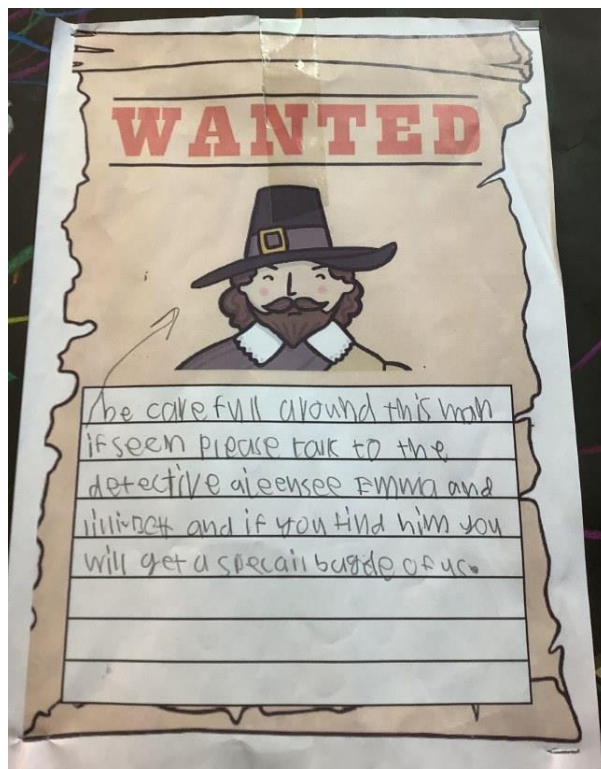 WANTED
be carefull around this man
if seen please talk to the
detective Emma and
and if you find him you
will get a specail bugde of us.